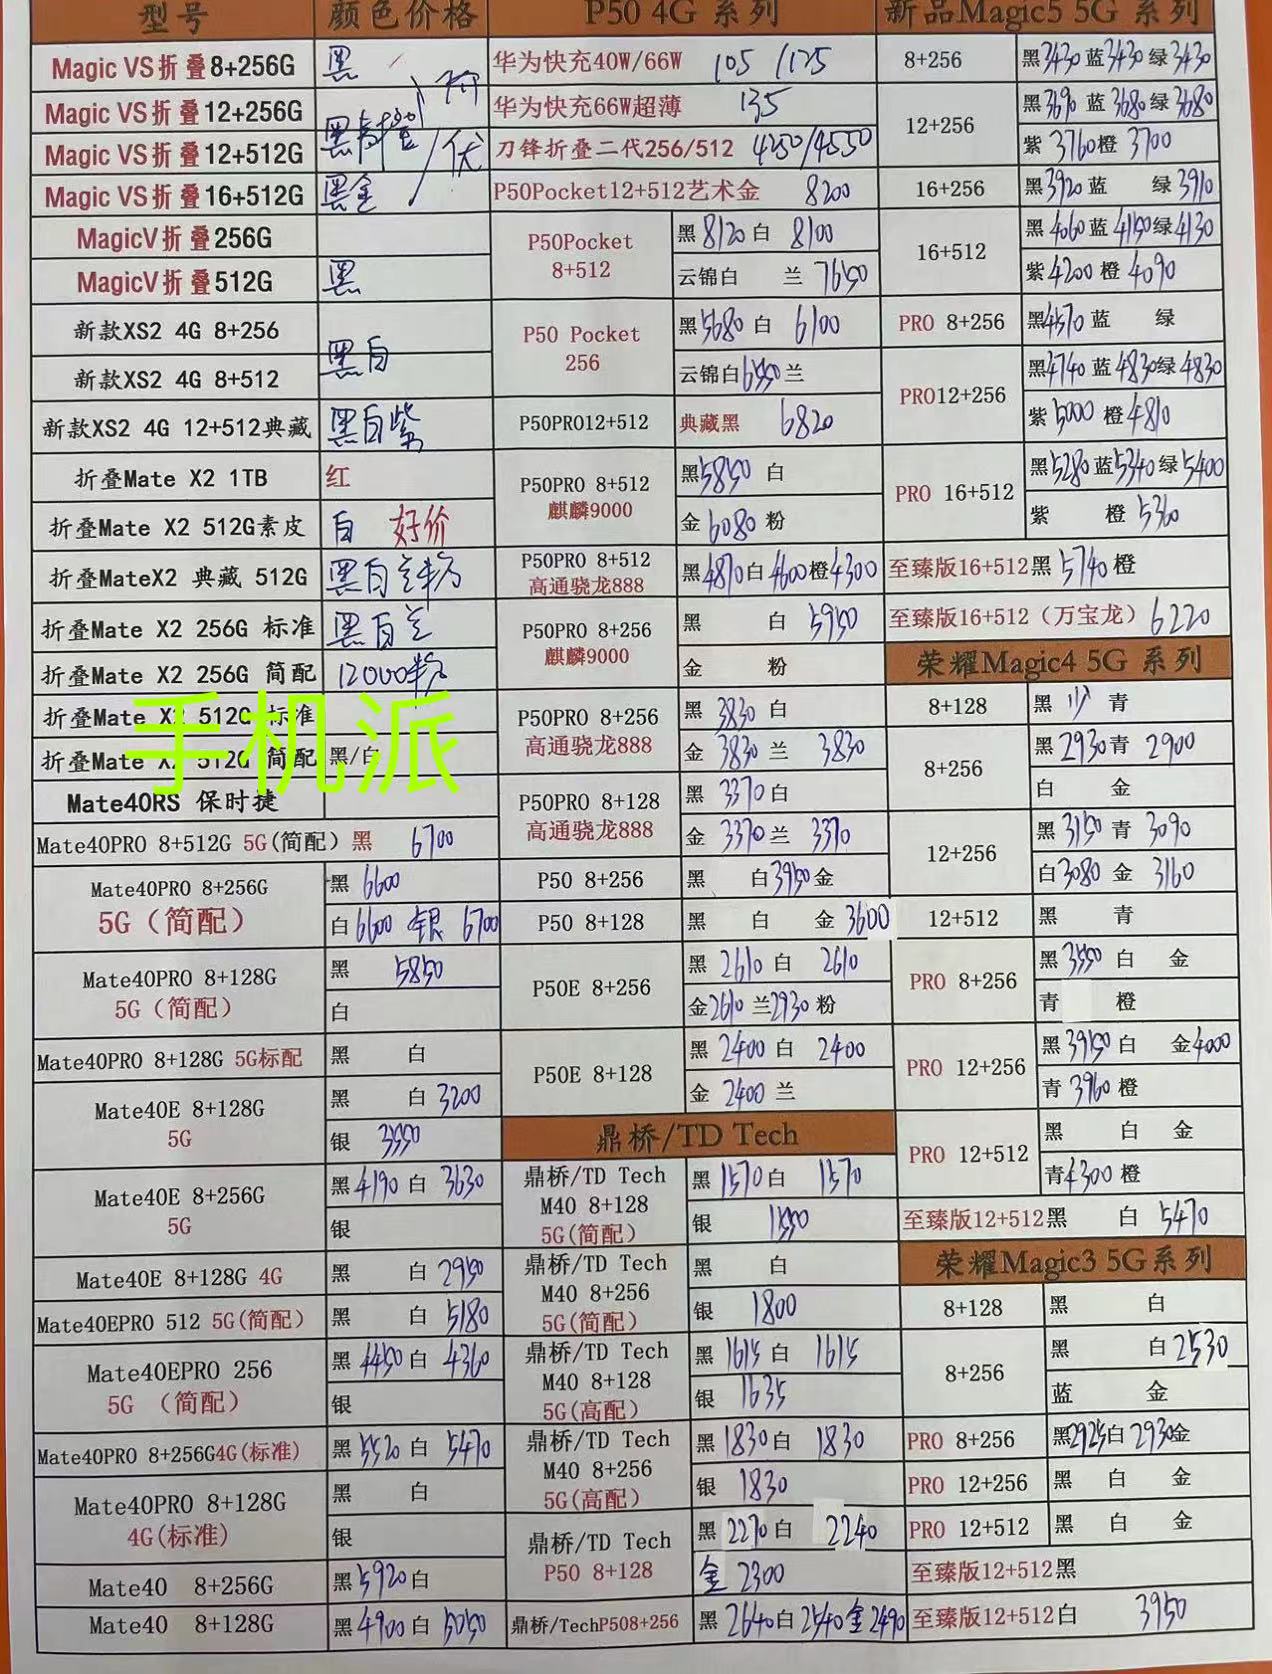 型号 颜色价格
Magic VS折叠8+256G 黑
Magic VS折叠12+256G
Magic VS折叠12+512G 黑
Magic VS折叠16+512G 黑金
优
MagicV折叠256G
MagicV折叠512G 黑
新款XS2 4G 8+256
新款XS2 4G 8+512
黑白
新款XS2 4G 12+512典藏 黑白紫
折叠Mate X2 1TB 红
折叠Mate X2 512G素皮 白 好价
折叠MateX2 典藏 512G 黑白兰粉
折叠Mate X2 256G 标准 黑白兰
折叠Mate X2 256G 简配 12000粉
折叠Mate X2 512G 标准
折叠Mate X2 512G 简配 黑/白
手机派
Mate40RS 保时捷
Mate40PRO 8+512G 5G(简配) 黑 6700
Mate40PRO 8+256G
5G(简配)
黑 6600
白6600 银 6700
Mate40PRO 8+128G
5G(简配)
黑 5850
白
Mate40PRO 8+128G 5G标配 黑 白
Mate40E 8+128G
5G
黑 白 3200
银 3550
Mate40E 8+256G
5G
黑4190 白 3630
银
Mate40E 8+128G 4G 黑 白 2950
Mate40EPRO 512 5G(简配) 黑 白 5180
Mate40EPRO 256
5G (简配)
黑 4450 白 4360
银
Mate40PRO 8+256G4G(标准) 黑 5520 白 5470
Mate40PRO 8+128G
4G(标准)
黑 白
银
Mate40 8+256G 黑5920白
Mate40 8+128G 黑4900白 5050
P50 4G 系列
华为快充40W/66W 105 /125
华为快充66W超薄 135
刀锋折叠二代256/512 4250/4550
P50Pocket12+512艺术金 8200
P50Pocket
8+512
黑8120白 8100
云锦白 兰 7650
P50 Pocket
256
黑5680 白 6100
云锦白6550兰
P50PRO12+512 典藏黑 6820
P50PRO 8+512
麒麟9000
黑5850 白
金6080粉
P50PRO 8+512
高通骁龙888
黑4870白4600橙4300
P50PRO 8+256
麒麟9000
黑 白 5950
金 粉
P50PRO 8+256
高通骁龙888
黑 3830 白
金 3830 兰 3830
P50PRO 8+128
高通骁龙888
黑 3370 白
金 3370 兰 3370
P50 8+256 黑 白3950金
P50 8+128 黑 白 金 3600
P50E 8+256
黑 2610 白 2610
金2610 兰2930 粉
P50E 8+128
黑 2400 白 2400
金 2400 兰
鼎桥/TD Tech
鼎桥/TD Tech
M40 8+128
5G(简配)
黑 1570白 1570
银 1550
鼎桥/TD Tech
M40 8+256
5G(简配)
黑 白
银 1800
鼎桥/TD Tech
M40 8+128
5G(高配)
黑 1615 白 1615
银 1635
鼎桥/TD Tech
M40 8+256
5G(高配)
黑 1830白 1830
银 1830
鼎桥/TD Tech
P50 8+128
黑 2270白 2240
金 2300
鼎桥/TechP508+256 黑 2640白2540金2490
新品Magic5 5G 系列
8+256 黑3430 蓝3430 绿3430
12+256
黑3690 蓝3680绿3680
紫 3760橙 3700
16+256 黑3920 蓝 绿3910
16+512
黑4060蓝4150绿4130
紫4200 橙 4090
PRO 8+256 黑4570蓝 绿
PRO12+256
黑4740 蓝4830绿 4830
紫 5000 橙4810
PRO 16+512
黑5280蓝5340绿5400
紫 橙 5360
至臻版16+512黑 5740 橙
至臻版16+512(万宝龙) 6220
荣耀Magic4 5G 系列
8+128 黑 少 青
8+256
黑 2930青 2900
白 金
12+256
黑 3150 青 3090
白3080 金 3160
12+512 黑 青
PRO 8+256
黑3550 白 金
青 橙
PRO 12+256
黑 3950白 金4000
青 3960 橙
PRO 12+512
黑 白 金
青4300 橙
至臻版12+512黑 白 5470
荣耀Magic3 5G系列
8+128 黑 白
8+256
黑 白2530
蓝 金
PRO 8+256 黑2925白2930金
PRO 12+256 黑 白 金
PRO 12+512 黑 白 金
至臻版12+512黑
至臻版12+512白 3950